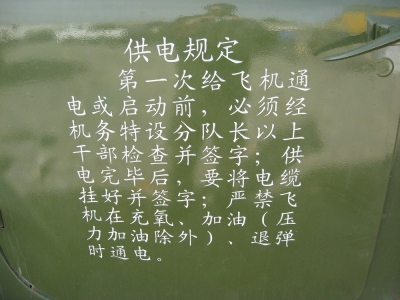 供电规定
第一次给飞机通
电或启动前，必须经
机务特设分队长以上
干部检查并签字；供
电完毕后，要将电缆
挂好并签字；严禁飞
机在充氧、加油（压
力加油除外）、退弹
时通电。